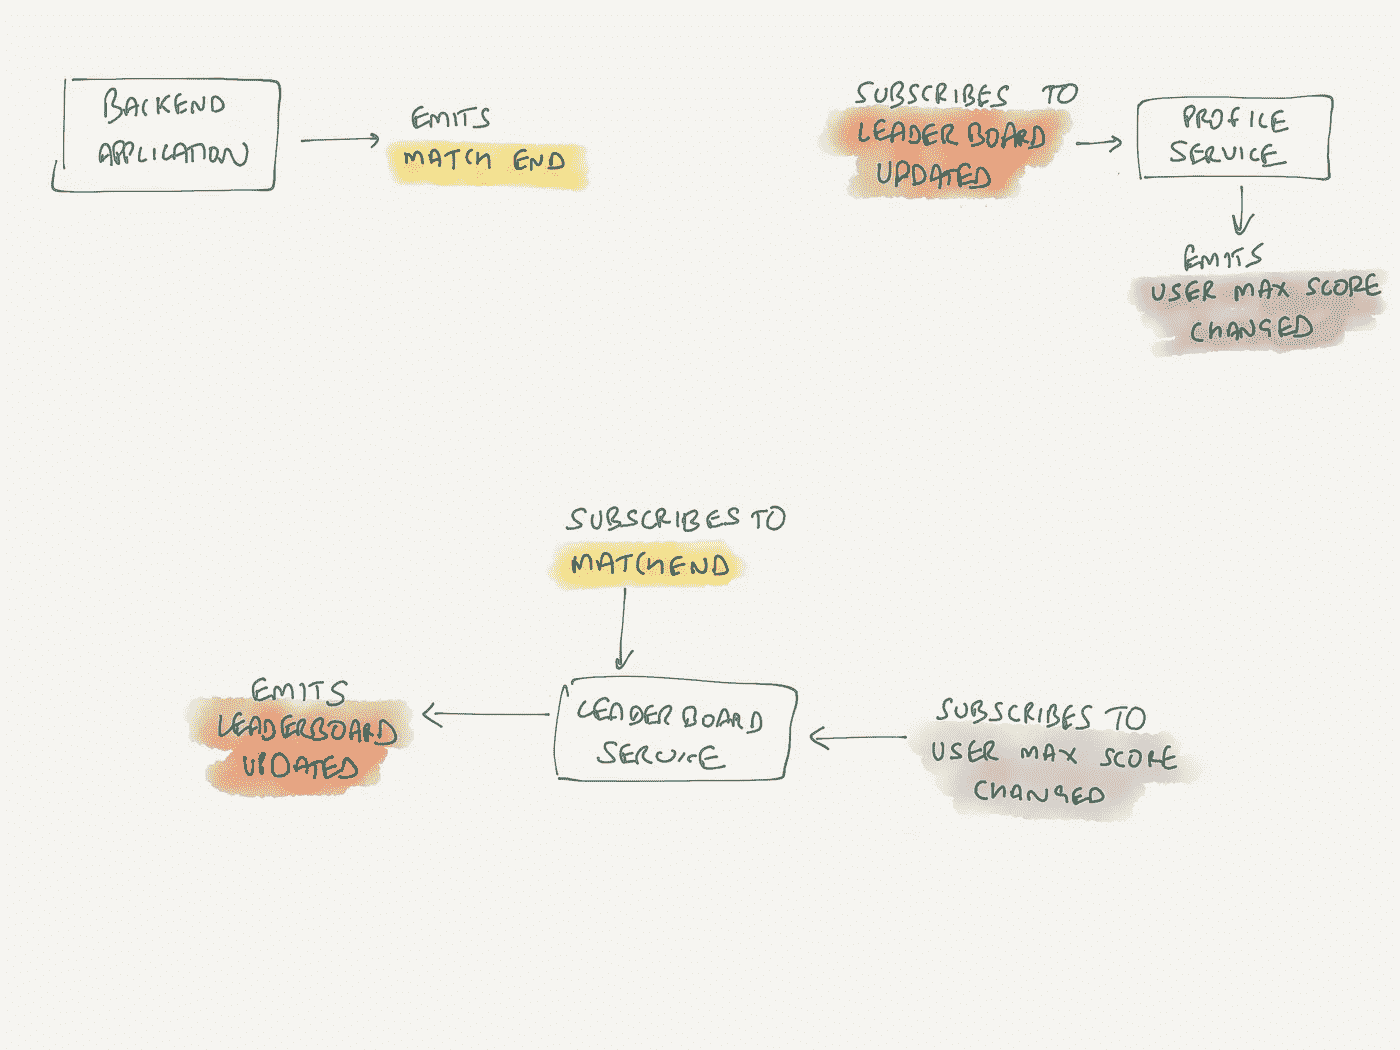 BACKEND
APPLICATION
EMITS
MATCH END
SUBSCRIBES TO
LEADER BOARD
UPDATED
PROFILE
SERVICE
EMITS
USER MAX SCORE
CHANGED
SUBSCRIBES TO
MATCH END
EMITS
LEADERBOARD
UPDATED
LEADER BOARD
SERVICE
SUBSCRIBES TO
USER MAX SCORE
CHANGED